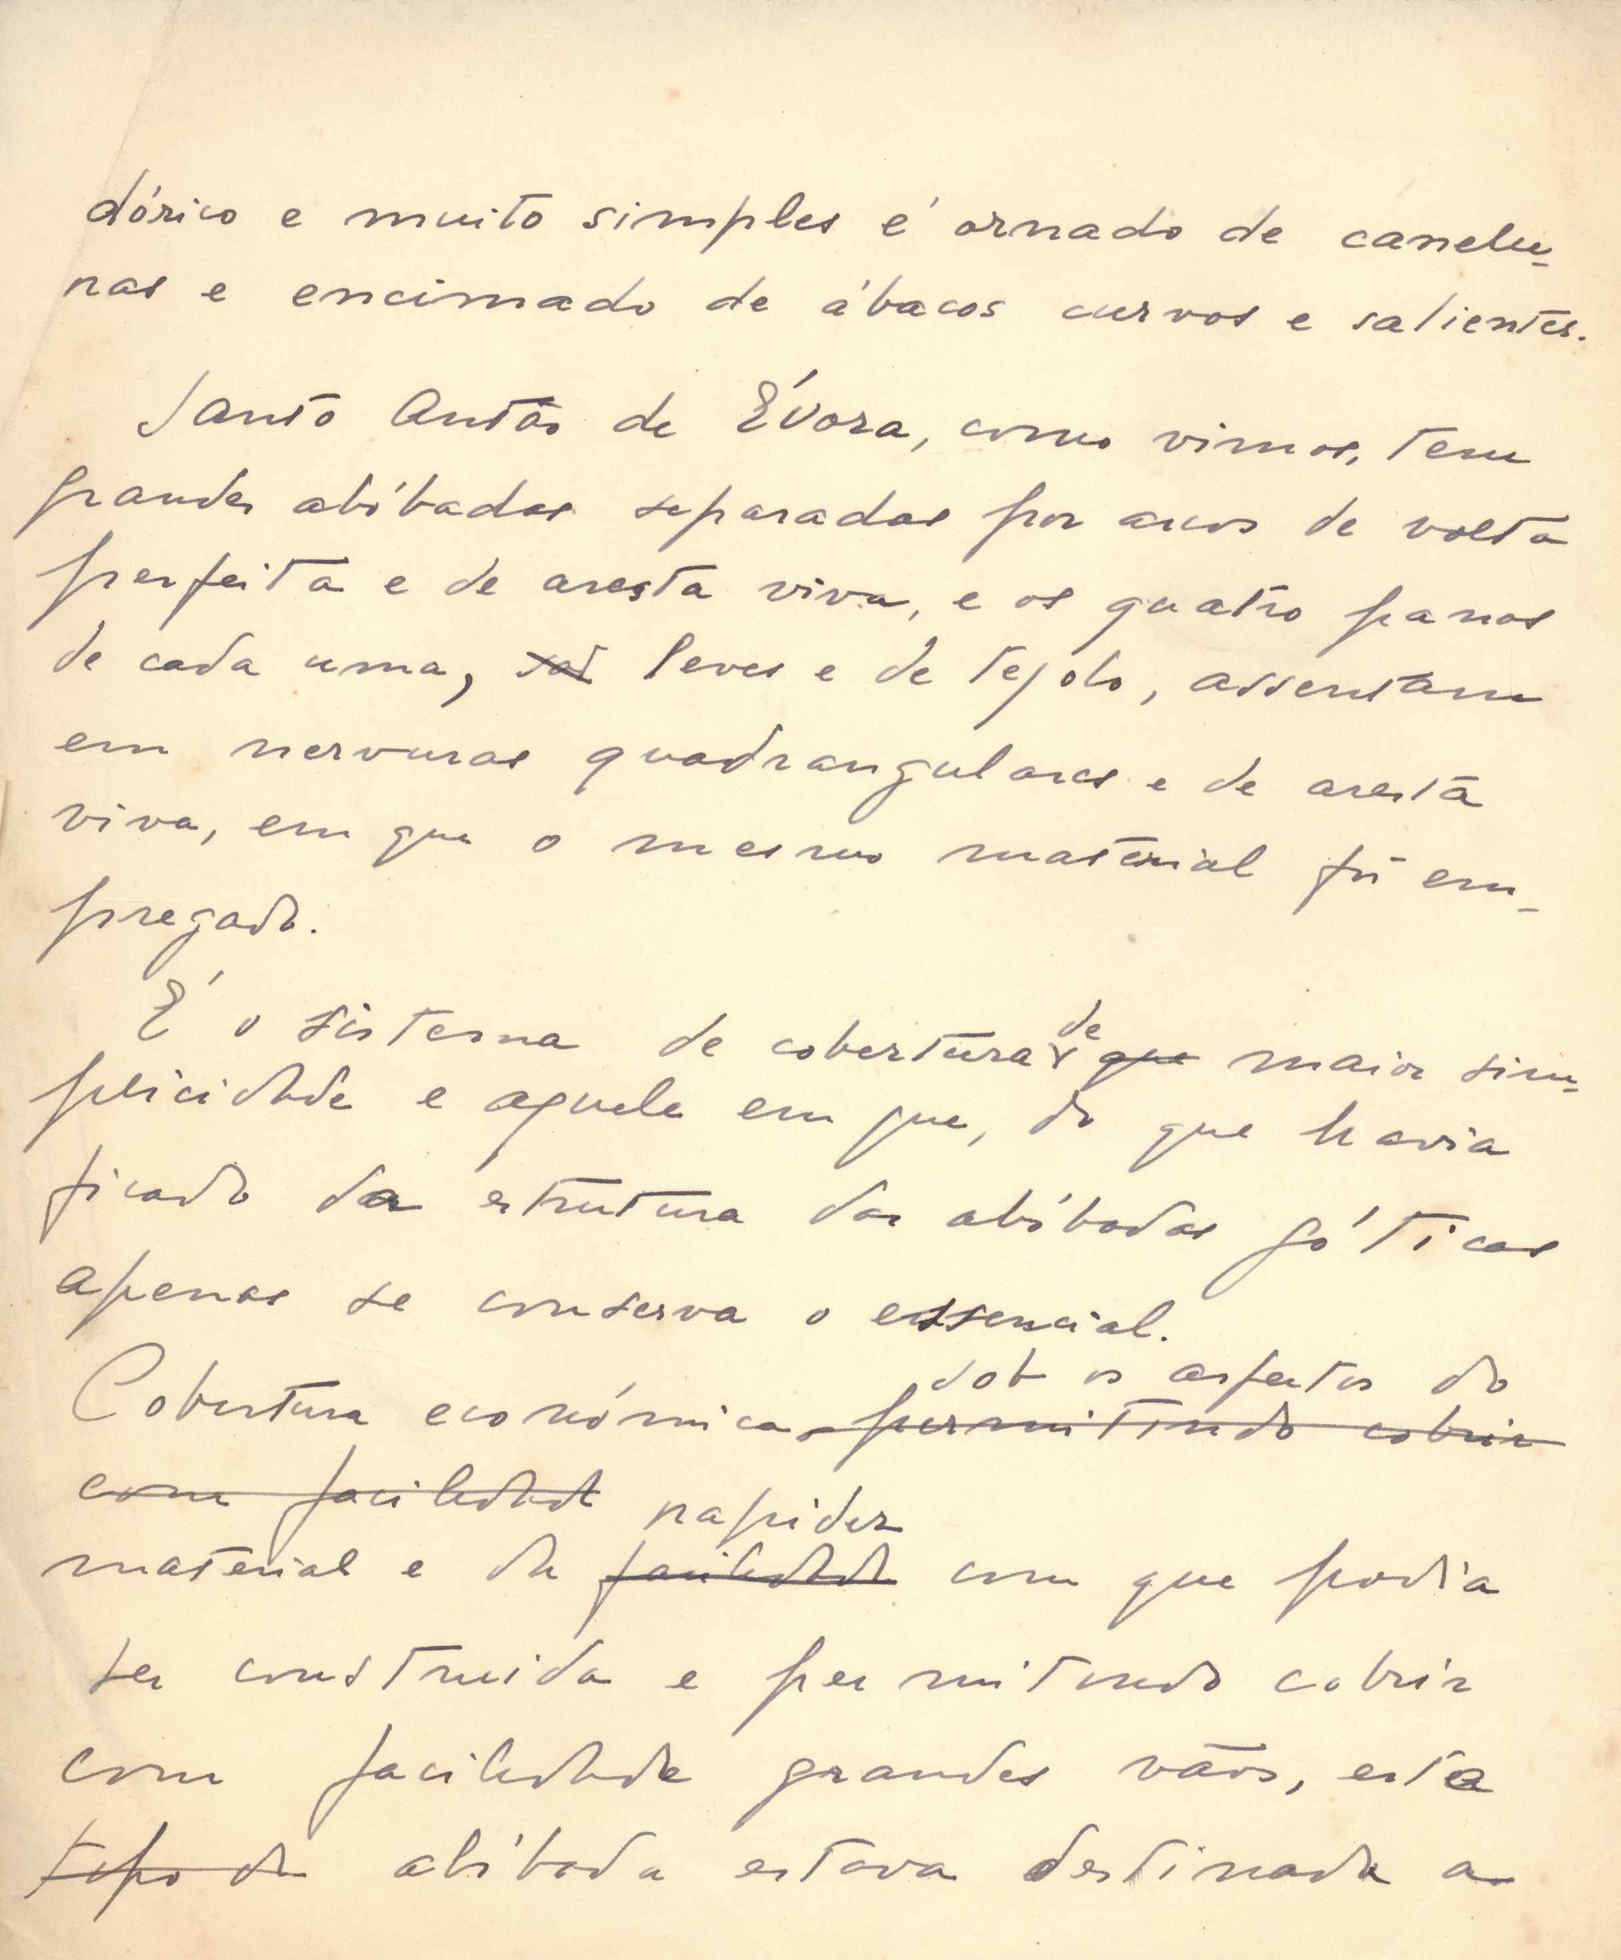 dórico e muito simples é ornado de canelu-
nas e encimado de ábacos curvos e salientes.
Santo Antão de Évora, como vimos, tem
grandes abóbadas separadas por arcos de volta
perfeita e de aresta viva, e os quatro panos
de cada uma, são leves e de tejolo, assentam
em nervuras quadrangulares e de aresta
viva, em que o mesmo material foi em-
pregado.
É o sistema de cobertura de que maior sim-
plicidade e aquele em que, do que havia
ficado da estrutura das abóbadas góticas
apenas se conserva o essencial.
sob os aspectos do
Cobertura económica, permitindo cobrir
com facilidade
rapidez
material e da facilidade com que podia
ser construida e permitindo cobrir
com facilidade grandes vãos, esta
tipo de abóbada estava destinada a